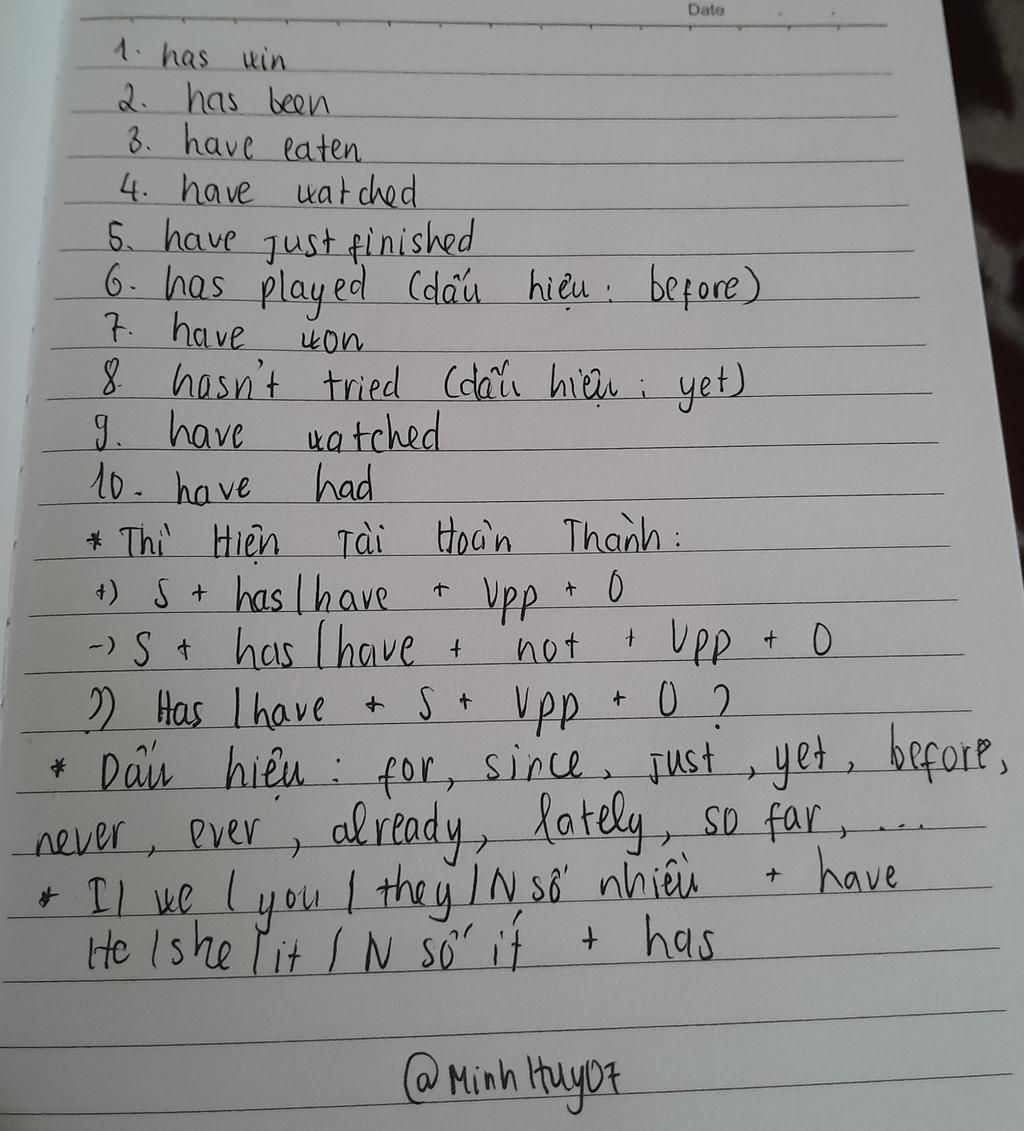 Date
1. has win
2. has been
3. have eaten
4. have watched
5. have just finished
6. has played (dấu hiệu : before)
7. have won
8. hasn't tried (dấu hiệu : yet)
9. have watched
10. have had
* Thì Hiện Tại Hoàn Thành :
+) S + has / have + Vpp + O
-) S + has / have + not + Vpp + O
?) Has / have + S + Vpp + O ?
* Dấu hiệu : for, since, just, yet, before,
never, ever, already, lately, so far, ...
* I / we / you / they / N số nhiều + have
He / she / it / N số ít + has
@MinhHuy07